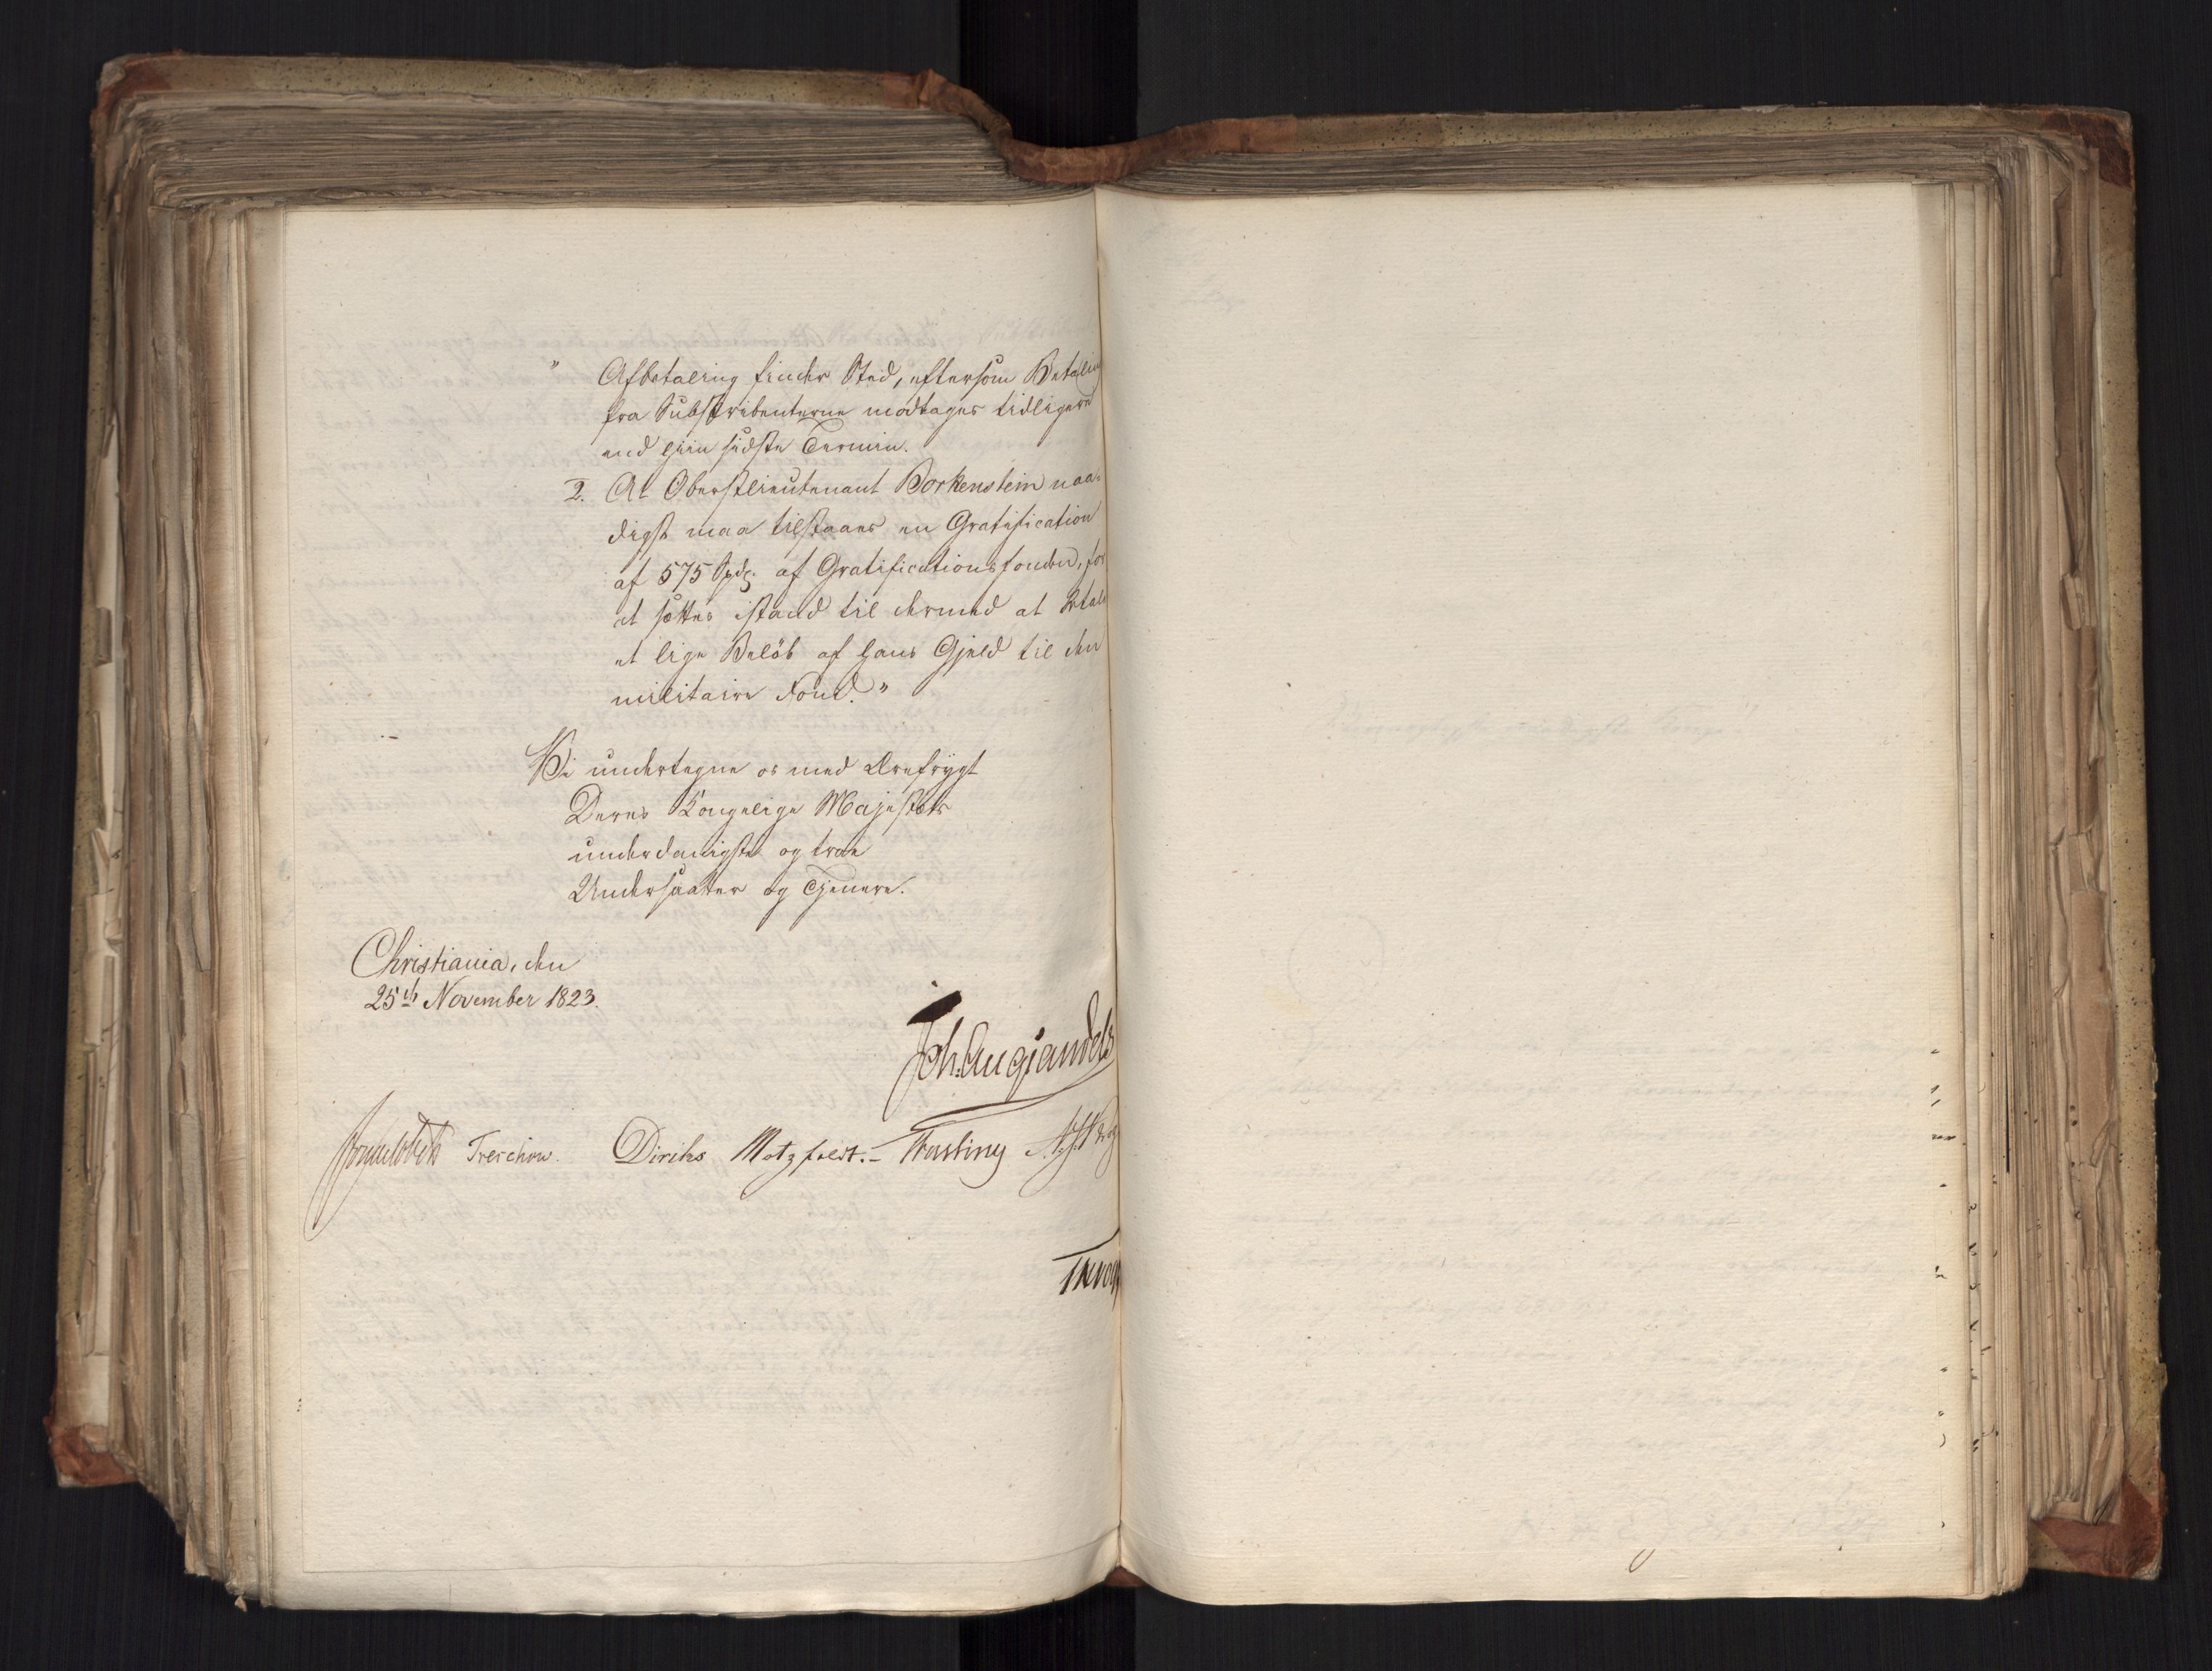 " Afbetaling finder Sted, eftersom Betalin
fra Subskribenterne modtages tidligere
end hiin sidste Termin.
2. At Oberstlieutenant Borkenstein naa-
digst maa tilstaaes en Gratification
af 575 Spd. af Gratificationsfonden, for
at sættes istand til dermed at betale
et lige Beløb af hans Gjeld til den
militaire Fond."
Vi undertegne os med Ærefrygt
Deres Kongelige Majestæts
underdanigste og troe
Undersaatter og Tjenere.
Christiania, den
25de November 1823.
Joh. Aug Sandels
Sommerhielm Treschow. Diriks Motzfeldt.- Fasting